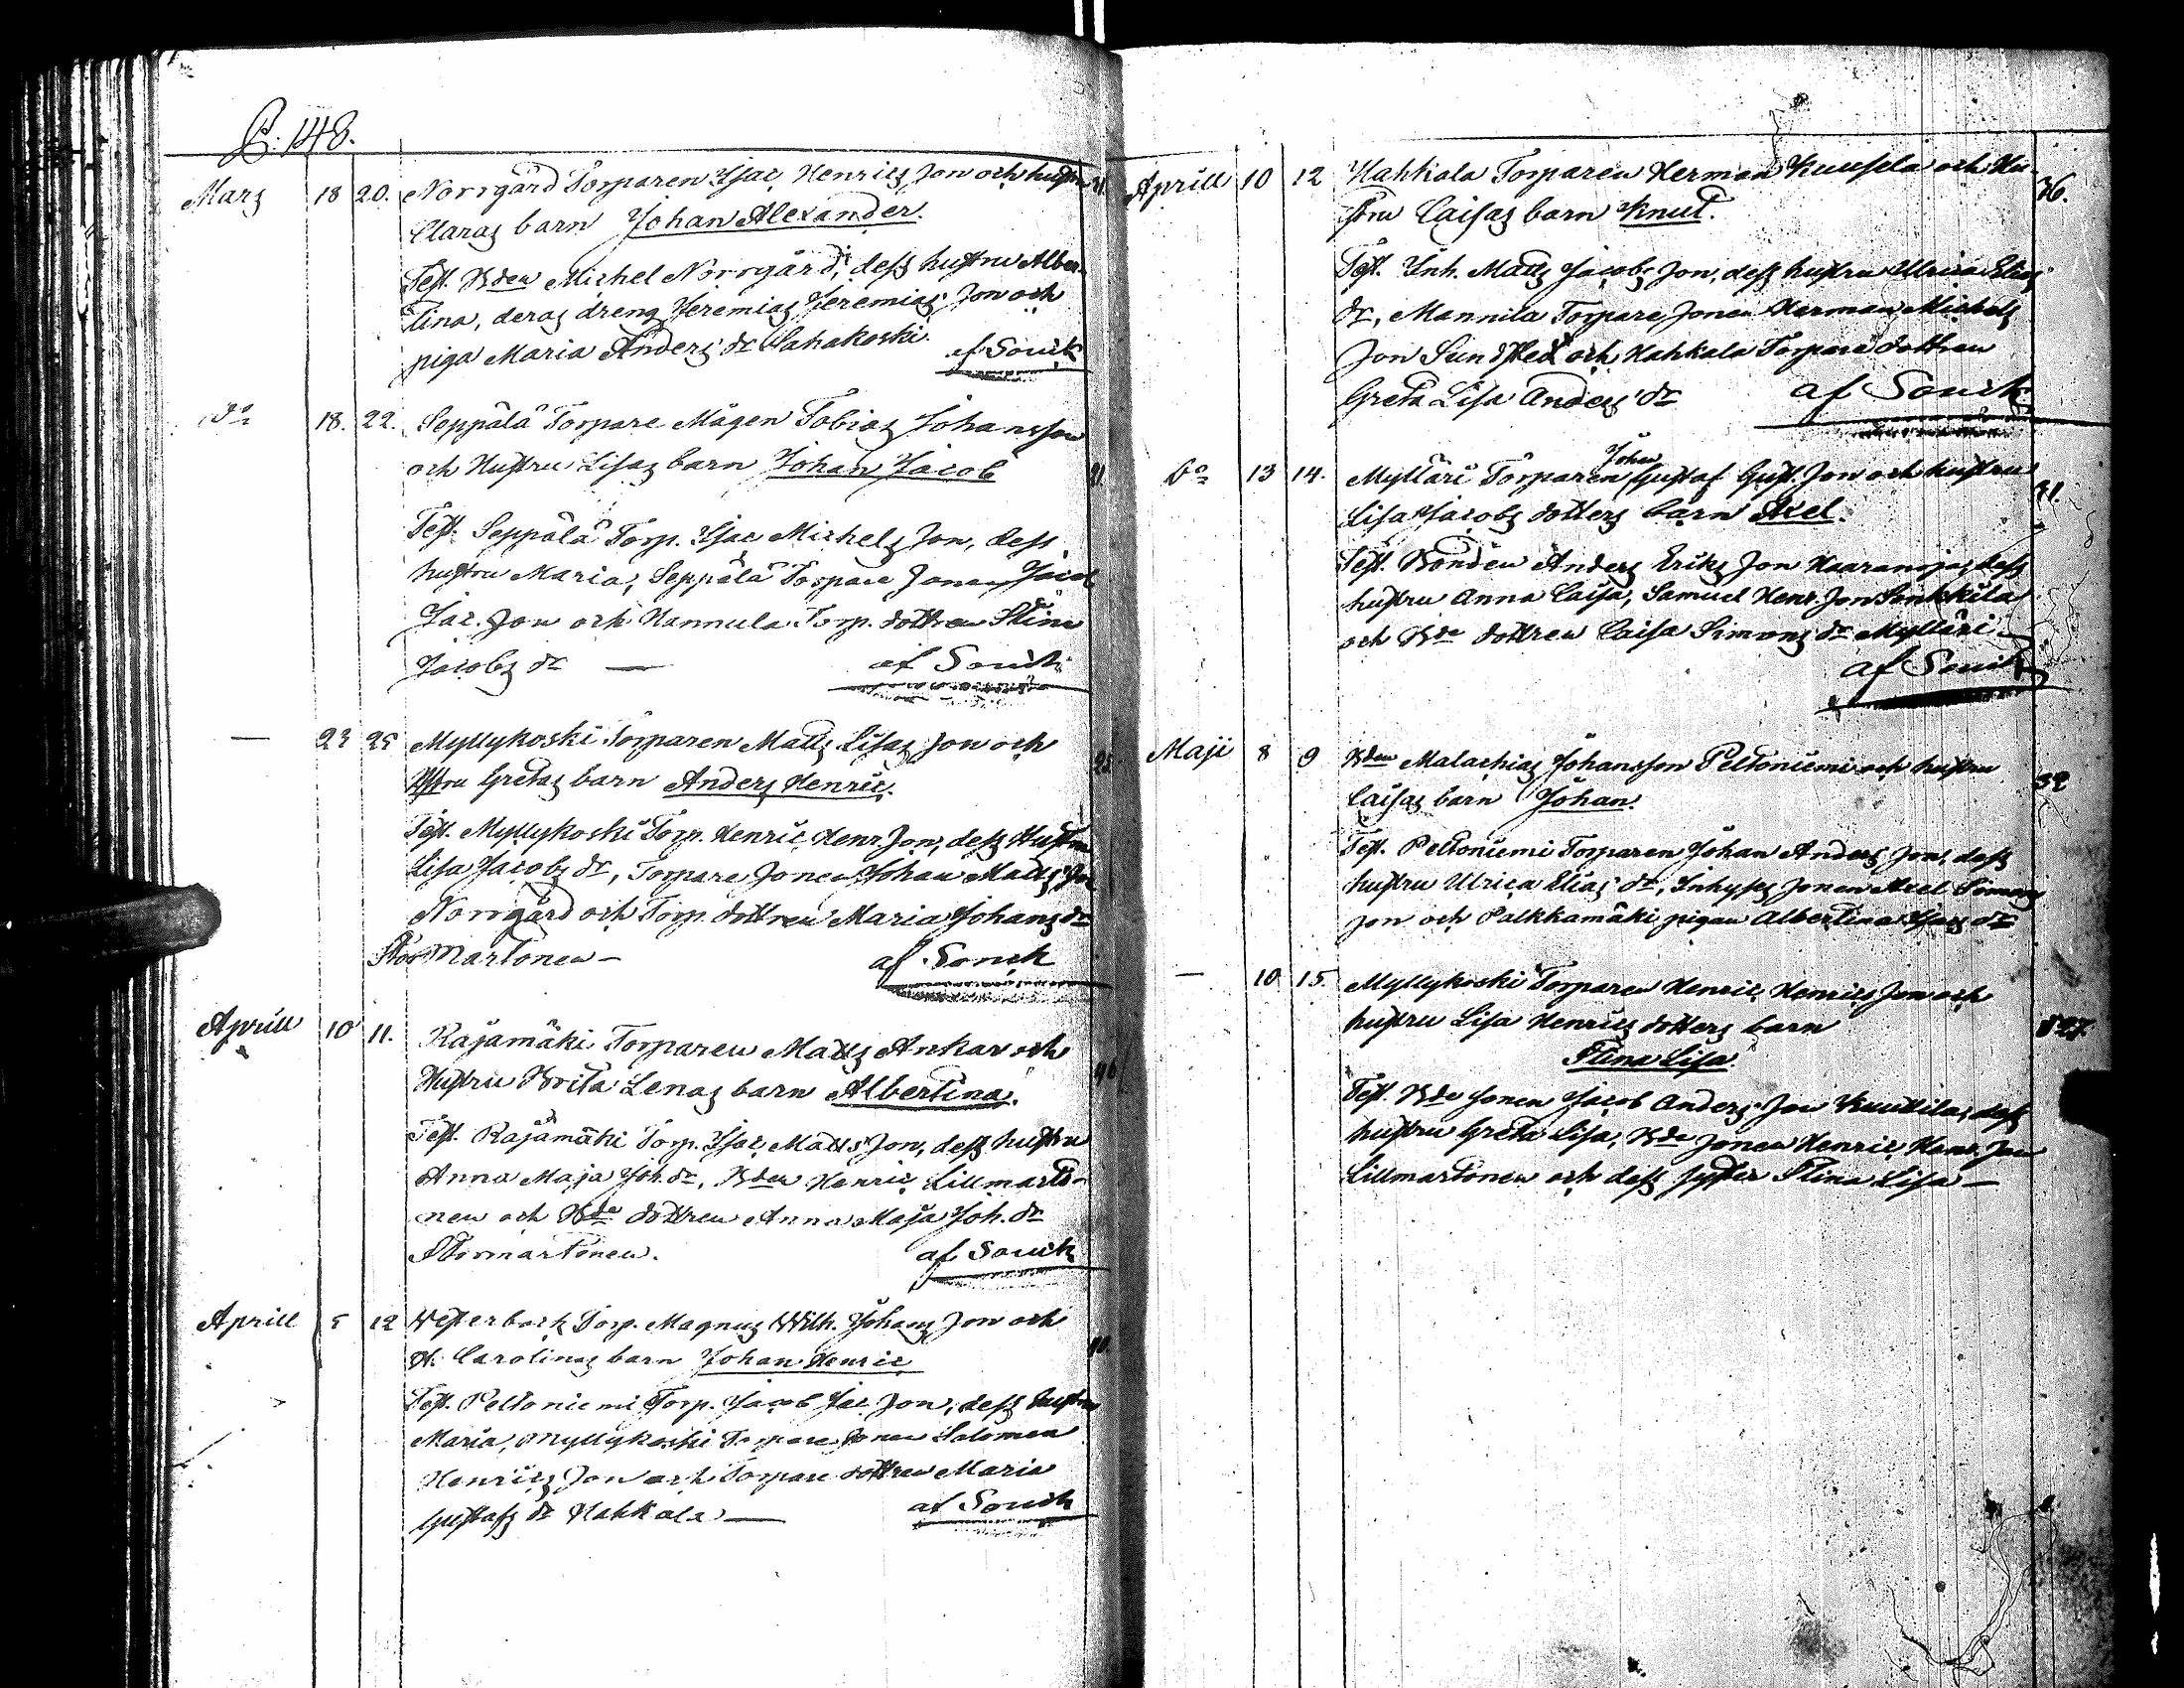 P. 148.
Mars 18 20. Norrgård Torparen Isac Henrics Son och hustru
Claras barn Johan Alexander.
Test. Bden Michel Norrgård, dess hustru Alber-
tina, deras dreng Jeremias Jeremias Son och
piga Maria Anders dr Sahakoski. af Sonck
Do 18. 22. Seppälä Torpare Mågen Tobias Johansson
och Hustru Lisas barn Johan Jacob
Test. Seppälä Torp. Isac Michels Son, dess
hustru Maria, Seppälä Torpare Sonen Jacob
Jac. Son och Hannula Torp. dottren Stina
Jacobs dr — af Sonck
— 23 25 Myllykoski Torparen Matts Lisas Son och
Hstru Gretas barn Anders Henric.
Test. Myllykoski Torp. Henric Henr. Son, dess Hustru
Lisa Jacobs dr, Torpare Sonen Johan Matts Son
Norrgård och Torp. dottren Maria Johans dr
Stor Martonen — af Sonck
Aprill 10 11. Rajamäki Torparen Matts Ankar och
Hustru Brita Lenas barn Albertina.
Test. Rajamäki Torp. Isac Matts Son, dess hustru
Anna Maja Joh. dr, Bden Henric Lillmarto-
nen och Bde dottren Anna Maja Joh. dr
Stormartonen. af Sonck
Aprill 5 12 Westerback Torp. Magnus Wilh. Johans Son och
H. Carolinas barn Johan Henric
Test. Peltoniemi Torp. Jacob Jac. Son, dess hustru
Maria, Myllykoski Torpare Sonen Salomon
Henrics Son och Torpare dottren Maria
Gustafs dr Hahkala — af Sonck
Aprill 10 12 Hahkala Torparen Herman Kuusela och Hu- 36.
stru Caisas barn Knut.
Test. Inh. Matts Jacobs Son, dess hustru Ulrica Elias
dr, Mannila Torpare Sonen Herman Michels
Son Sundsted och Hahkala Torpare dottren
Greta Lisa Anders dr af Sonck
Do 13 14. Mylläri Torparen Johan Gustaf Gust. Son och hustru 31.
Lisa Jacobs dotters barn Axel.
Test. Bonden Anders Eriks Son Haaranoja, dess
hustru Anna Caisa, Samuel Henr. Son Sonkkila
och Bde dottren Caisa Simons dr Mylläri —
af Sonck
Maji 8 9 Bden Malachias Johansson Peltoniemi och hustru 32
Caisas barn Johan.
Test. Peltoniemi Torparen Johan Anders Son, dess
hustru Ulrica Elias dr, Inhyses Sonen Axel Simons
Son och Palkkamäki pigan Albertina Isacs dr
— 10 15. Myllykoski Torparen Henric Henrics Son och
hustru Lisa Henrics dotters barn 27.
Stina Lisa.
Test. Bde Sonen Jacob Anders Son Knuttila, dess
hustru Greta Lisa, Bde Sonen Henric Henr. Son
Lillmartonen och dess syster Stina Lisa —